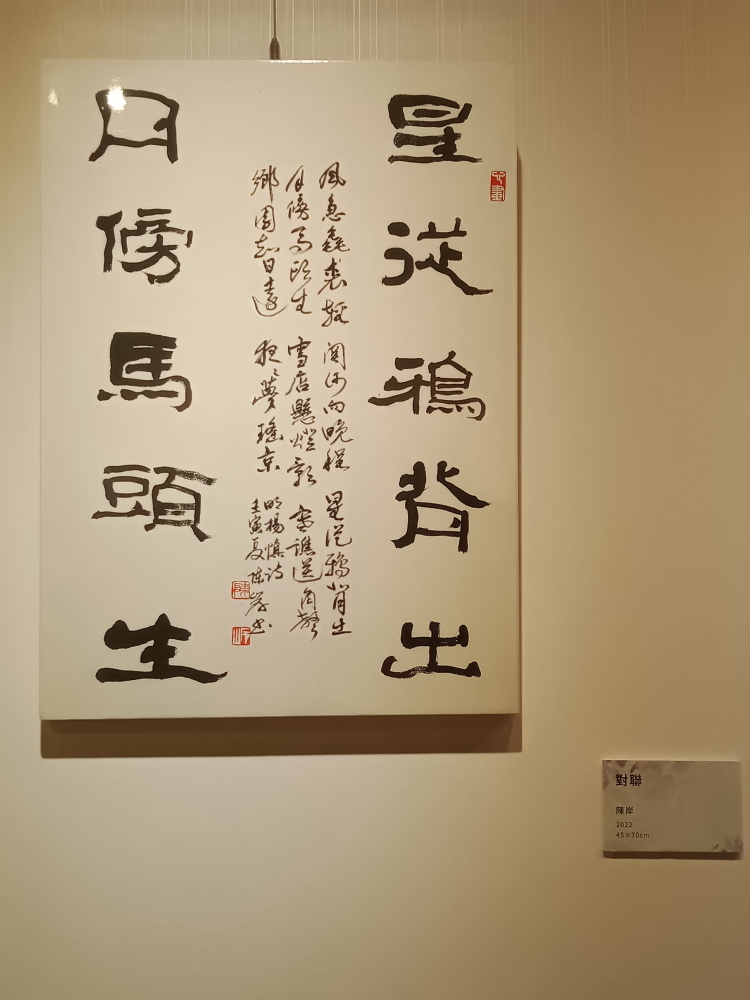 星從鴉背出
心畫
風急毳裘輕 關河向晚程 星從鴉背出
月傍馬頭生 雪店懸燈影 雲譙送角聲
鄉園知日遠 夜々夢瑤京
明楊慎詩
壬寅夏陳岸書
陳
岸
月傍馬頭生
對聯
陳岸
2022
45×70cm